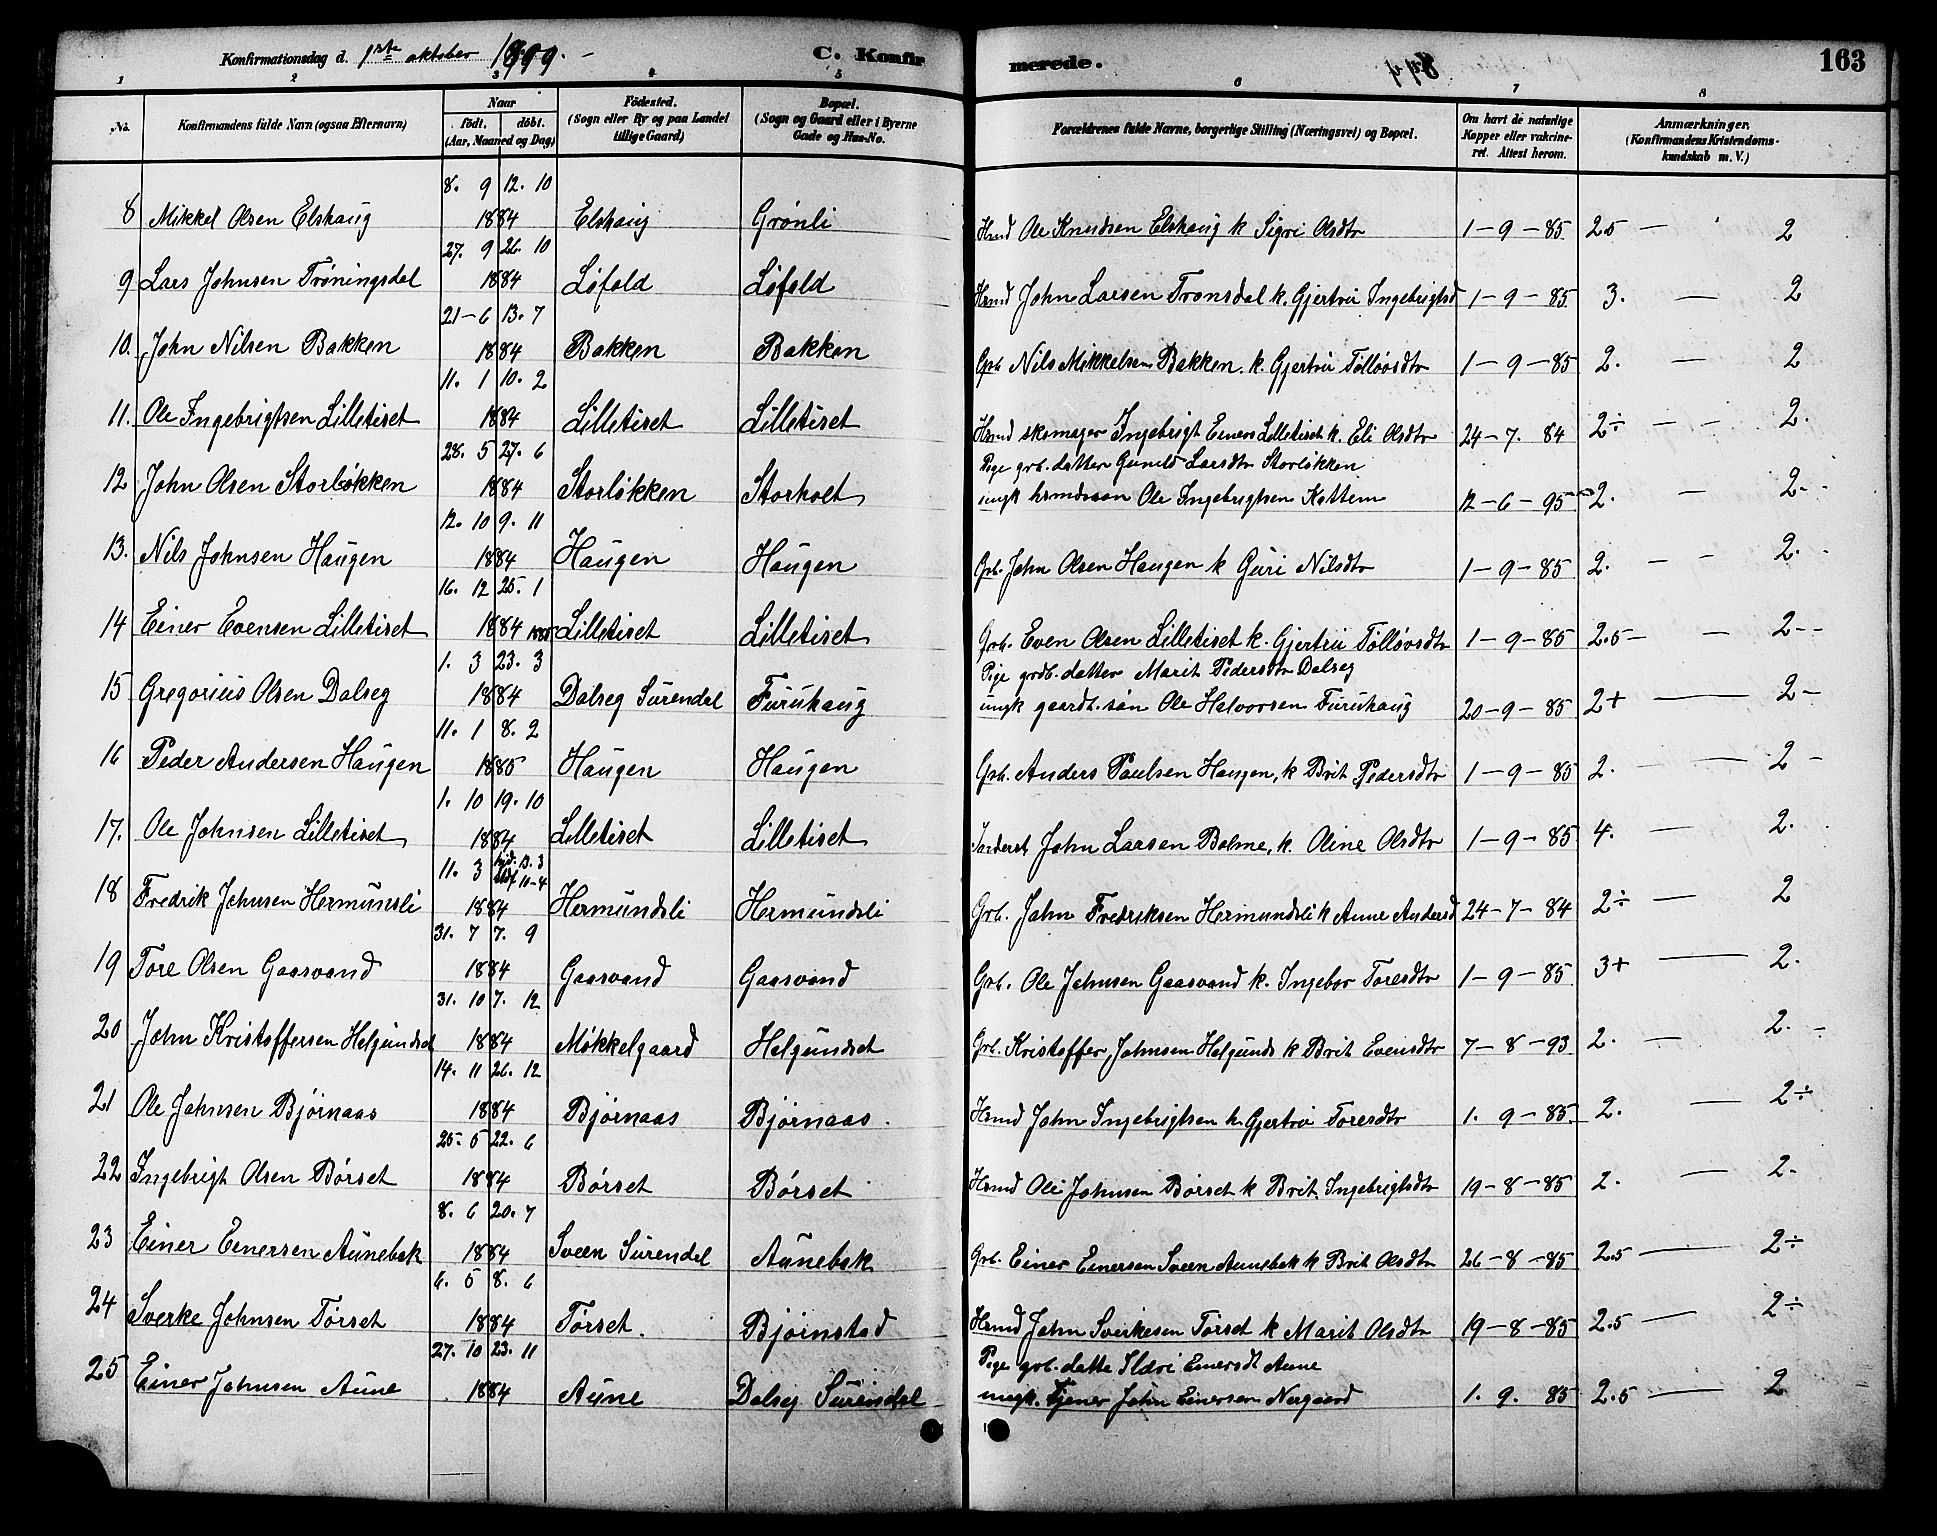 Konfirmationsdag d. 1ste oktober 1899. C. Konfir
merede. 163
1 2 3 4 5 6 7 8
No. Konfirmandens fulde Navn (ogsaa Efternavn) Naar födt. döbt. (Aar, Maaned og Dag) Födested. (Sogn eller By og paa Landet tillige Gaard) Bopæl. (Sogn og Gaard eller i Byerne Gade og Hus-No. Forældrenes fulde Navne, borgerlige Stilling (Næringsvei) og Bopæl. Om havt de naturlige Kopper eller vakcineret. Attest herom. Anmærkninger. (Konfirmandens Kristendomskundskab m. V.)
8. 9 12. 10
8 Mikkel Olsen Elshaug 1884 Elshaug Grönli Hmd Ole Knudsen Elshaug k Sigri Olsdtr 1-9-85 2.5 — 2
27. 9 26. 10
9 Lars Johnsen Tröningsdal 1884 Löfald Löfald Hmd John Larsen Tronsdal k. Gjertru Ingebrigtsd 1-9-85 3. — 2
21-6 13. 7
10. John Nilsen Bakken 1884 Bakken Bakken Grb. Nils Mikkelsen Bakken. k. Gjertru Tollövsdtr 1-9-85 2. — 2
11. 1 10. 2
11. Ole Ingebrigtsen Lilletiset 1884 Lilletiset Lilletiset Hmd skomager Ingebrigt Eners Lilletiset k. Eli Olsdtr 24-7. 84 2÷ — 2.
28. 5 27. 6 Pige grb. datter Gunild Larsdtr Storløkken
12 John Olsen Storløkken 1884 Storløkken Storholt ungk hmdssøn Ole Ingebrigtsen Kattem 12-6-95 2. — 2-
12. 10 9. 11
13. Nils Johnsen Haugen 1884 Haugen Haugen Grb. John Olsen Haugen k Guri Nilsdtr 1-9-85 2. — 2.
16. 12 25. 1
14 Einer Evensen Lilletiset 1884 1885 Lilletiset Lilletiset Grb. Even Olsen Lilletiset k. Gjertru Tollövsdtr 1-9-85 2.5 — 2--
1. 3 23. 3 Pige grdb. datter Marit Pedersdtr Dalseg
15 Gregorius Olsen Dalseg 1884 Dalseg Surendal Furuhaug ungk gaardb. søn Ole Halvorsen Furuhaug 20-9-85 2+ — 2-
11. 1 8. 2
16 Peder Andersen Haugen 1885 Haugen Haugen Grb. Anders Paulsen Haugen, k Brit Pedersdtr 1-9-85 2. — 2-
1. 10 19. 10
17. Ole Johnsen Lilletiset 1884 Lilletiset Lilletiset Inderst John Larsen Bolme, k. Oline Olsdtr 1-9-85 4. — 2.
11. 3 hjd. 13. 3 stdf. 11-4
18 Fredrik Johnsen Hermundsli 1884 Hermundsli Hermundsli Grb. John Fredriksen Hermundsli k Anne Andersd 24-7-84 2÷ — 2
31. 7 7. 9
19 Tore Olsen Gaasvand 1884 Gaasvand Gaasvand Grb. Ole Johnsen Gaasvand k. Ingebor Toresdtr 1-9-85 3+ — 2.
31. 10 7. 12
20 John Kristoffersen Helgundset 1884 Møkkelgaard Helgundset Grb. Kristoffer Johnsen Helgunds k Brit Evensdtr 7-8-93 2. — 2.-
14. 11 26. 12
21 Ole Johnsen Bjørnaas 1884 Bjørnaas Bjørnaas. Hmd John Ingebrigtsen k. Gjertru Toresdtr 1. 9-85. 2. — 2÷
25. 5 22. 6
22 Ingebrigt Olsen Børset 1884 Børset Børset Hmd Ole Johnsen Børset k Brit Ingebrigtsdtr 19-8-85 2. — 2.
8. 6 20. 7
23 Einer Einersen Aunebak 1884 Sveen Surendal Aunebak Grb. Einer Einersen Sveen Aunebak k Brit Olsdtr 26-8-85 2.5 — 2÷
6. 5 8. 6
24 Sverke Johnsen Tørset 1884 Tørset. Bjørnstad Hmd John Sverkesen Tørset k Marit Olsdtr 19-8-85 2.5 — 2÷
27. 10 23. 11 Pige grb. datte Ildri Einersdt Aune
25 Einer Johnsen Aune 1884 Aune Dalsej Surendal ungk. Tjener John Einersen Nergaard 1. 9. 85 2.5 — 2